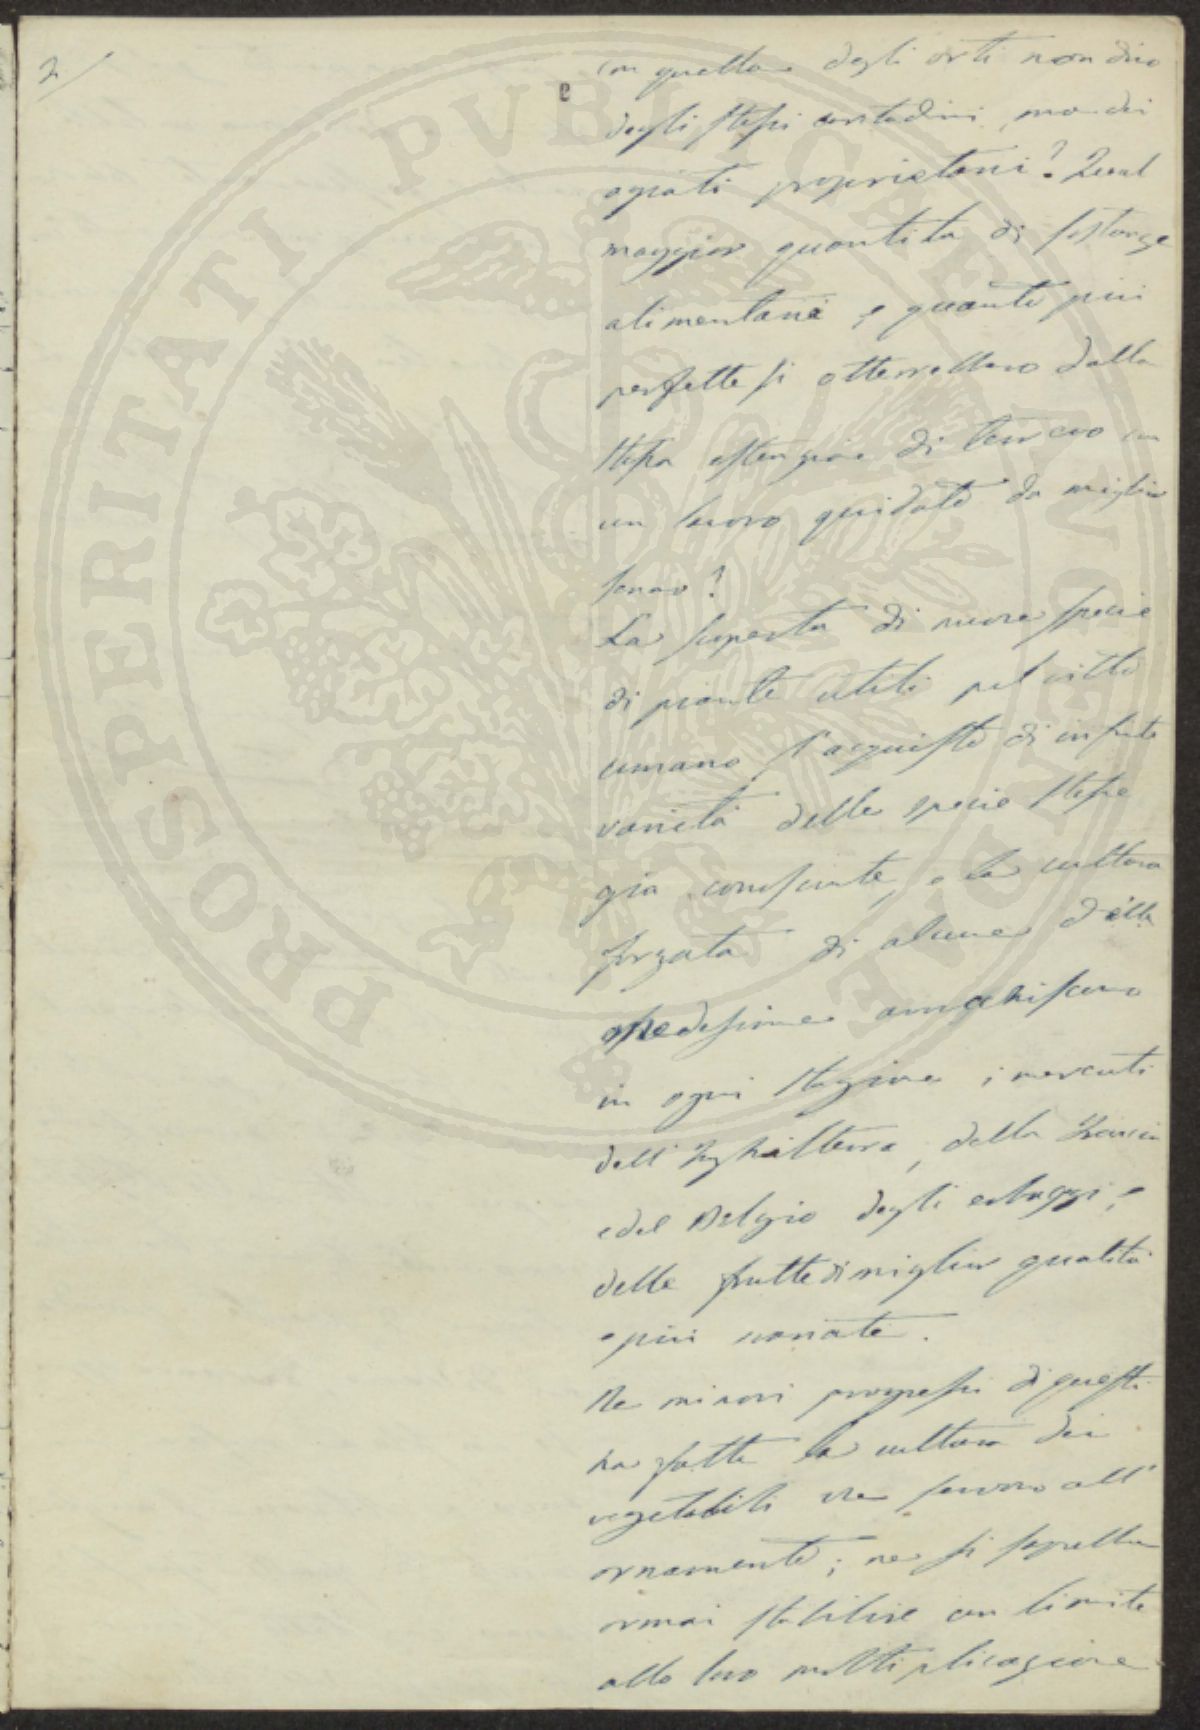 2/
con quella degli orti non dico
degli stessi contadini, ma dei
agiati proprietari? Qual
maggior quantità di sostanze
alimentari e quanto più
perfette si otterrebbero dalla
stessa estenzione di terreno con
un lavoro guidato da miglior
senno?
La scoperta di nuove specie
di piante utili pel vitto
umano l'acquisto di infinite
varietà delle specie stesse
già conosciute, e la cultura
forzata di alcune delle
medesime arrichiscono
in ogni stagione i mercati
dell'Inghilterra, della Francia
e del Belgio degli erbaggi, e
delle frutte di miglior qualità
e più variate.
Ne minori progressi di questi
ha fatto la cultura dei
vegetabili che servono all'
ornamento; ne si saprebbe
ormai stabilire un limite
alla loro moltiplicazione
PROSPERITATI PVBLICAE AVGENDAE